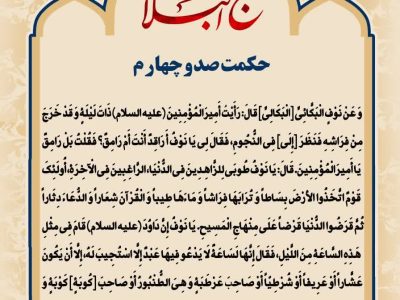 نهج البلاغه
حکمت صد و چهارم
وَ عَنْ نَوْفٍ الْبَكَائِيِّ [الْبَكَالِيِّ] قَالَ: رَأَيْتُ أَمِيرَ الْمُؤْمِنِينَ (علیه السلام) ذَاتَ لَيْلَةٍ وَ قَدْ خَرَجَ
مِنْ فِرَاشِهِ فَنَظَرَ [إِلَى] فِي النُّجُومِ، فَقَالَ لِي يَا نَوْفُ أَ رَاقِدٌ أَنْتَ أَمْ رَامِقٌ؟ فَقُلْتُ بَلْ رَامِقٌ
يَا أَمِيرَ الْمُؤْمِنِينَ. قَالَ: يَا نَوْفُ طُوبَى لِلزَّاهِدِينَ فِي الدُّنْيَا، الرَّاغِبِينَ فِي الْآخِرَةِ، أُولَئِكَ
قَوْمٌ اتَّخَذُوا الْأَرْضَ بِسَاطاً وَ تُرَابَهَا فِرَاشاً وَ مَاءَهَا طِيباً وَ الْقُرْآنَ شِعَاراً وَ الدُّعَاءَ دِثَاراً
ثُمَّ قَرَضُوا الدُّنْيَا قَرْضاً عَلَى مِنْهَاجِ الْمَسِيحِ. يَا نَوْفُ إِنَّ دَاوُدَ (علیه السلام) قَامَ فِي مِثْلِ
هَذِهِ السَّاعَةِ مِنَ اللَّيْلِ، فَقَالَ إِنَّهَا لَسَاعَةٌ لَا يَدْعُو فِيهَا عَبْدٌ إِلَّا اسْتُجِيبَ لَهُ، إِلَّا أَنْ يَكُونَ
عَشَّاراً أَوْ عَرِيفاً أَوْ شُرْطِيّاً أَوْ صَاحِبَ عَرْطَبَةٍ وَ هِيَ الطُّنْبُورُ أَوْ صَاحِبَ [كُوبَةٍ] كُوبَةٍ وَ